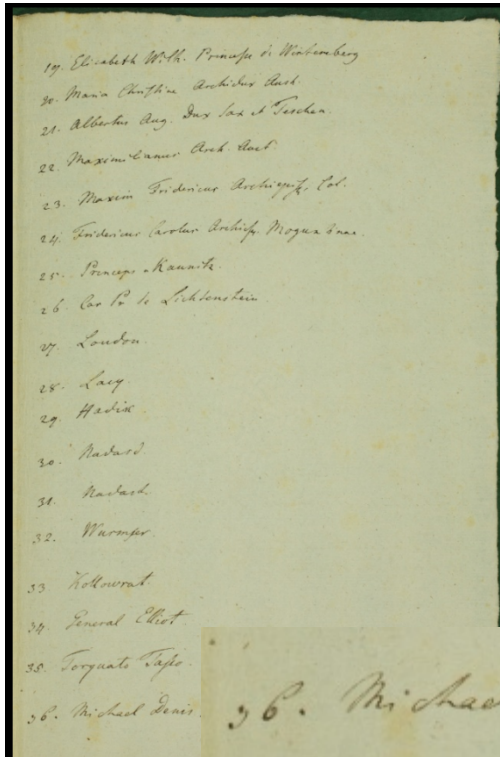 19. Elisabeth Wilh. Princesse de Wirtemberg
20. Maria Christina Archidux Aust.
21. Albertus Aug. Dux Sax et Teschen.
22. Maximilianus Arch. Aust.
23. Maxim Fridericus Archiepisc. Col.
24. Fridericus Carolus Archiep. Moguntinae.
25. Princeps Kaunitz.
26. Car Pr de Lichtenstein
27. Loudon.
28. Lacy.
29. Hadik
30.
31.
32. Wurmser.
33 Kollowrat.
34. General Elliot
35. Torquato Tasso.
36. Michael Denis.
36. Michae